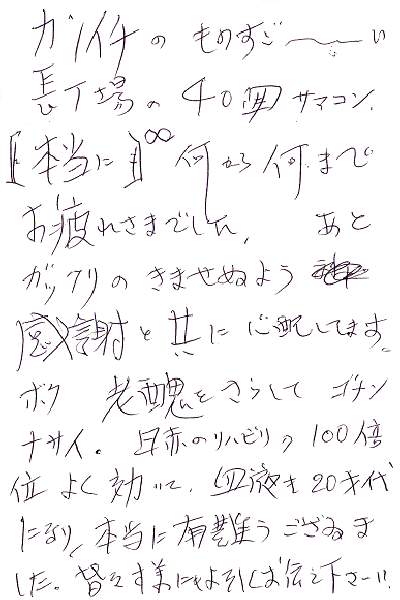 ガンイチの ものすご〜い
長丁場の 40回 サマコン、
【本当に】∞ 何から何まで
お疲れさまでした、 あと
ガックリの きませぬよう
感謝と共に 心配してます。
ボク 老醜をさらして ゴメン
ナサイ。日赤のリハビリの 100倍
位 よく効いて、血液も 20才代
になり、本当に有難うござゐま
した。皆々様にもよろしくお伝え下さーい